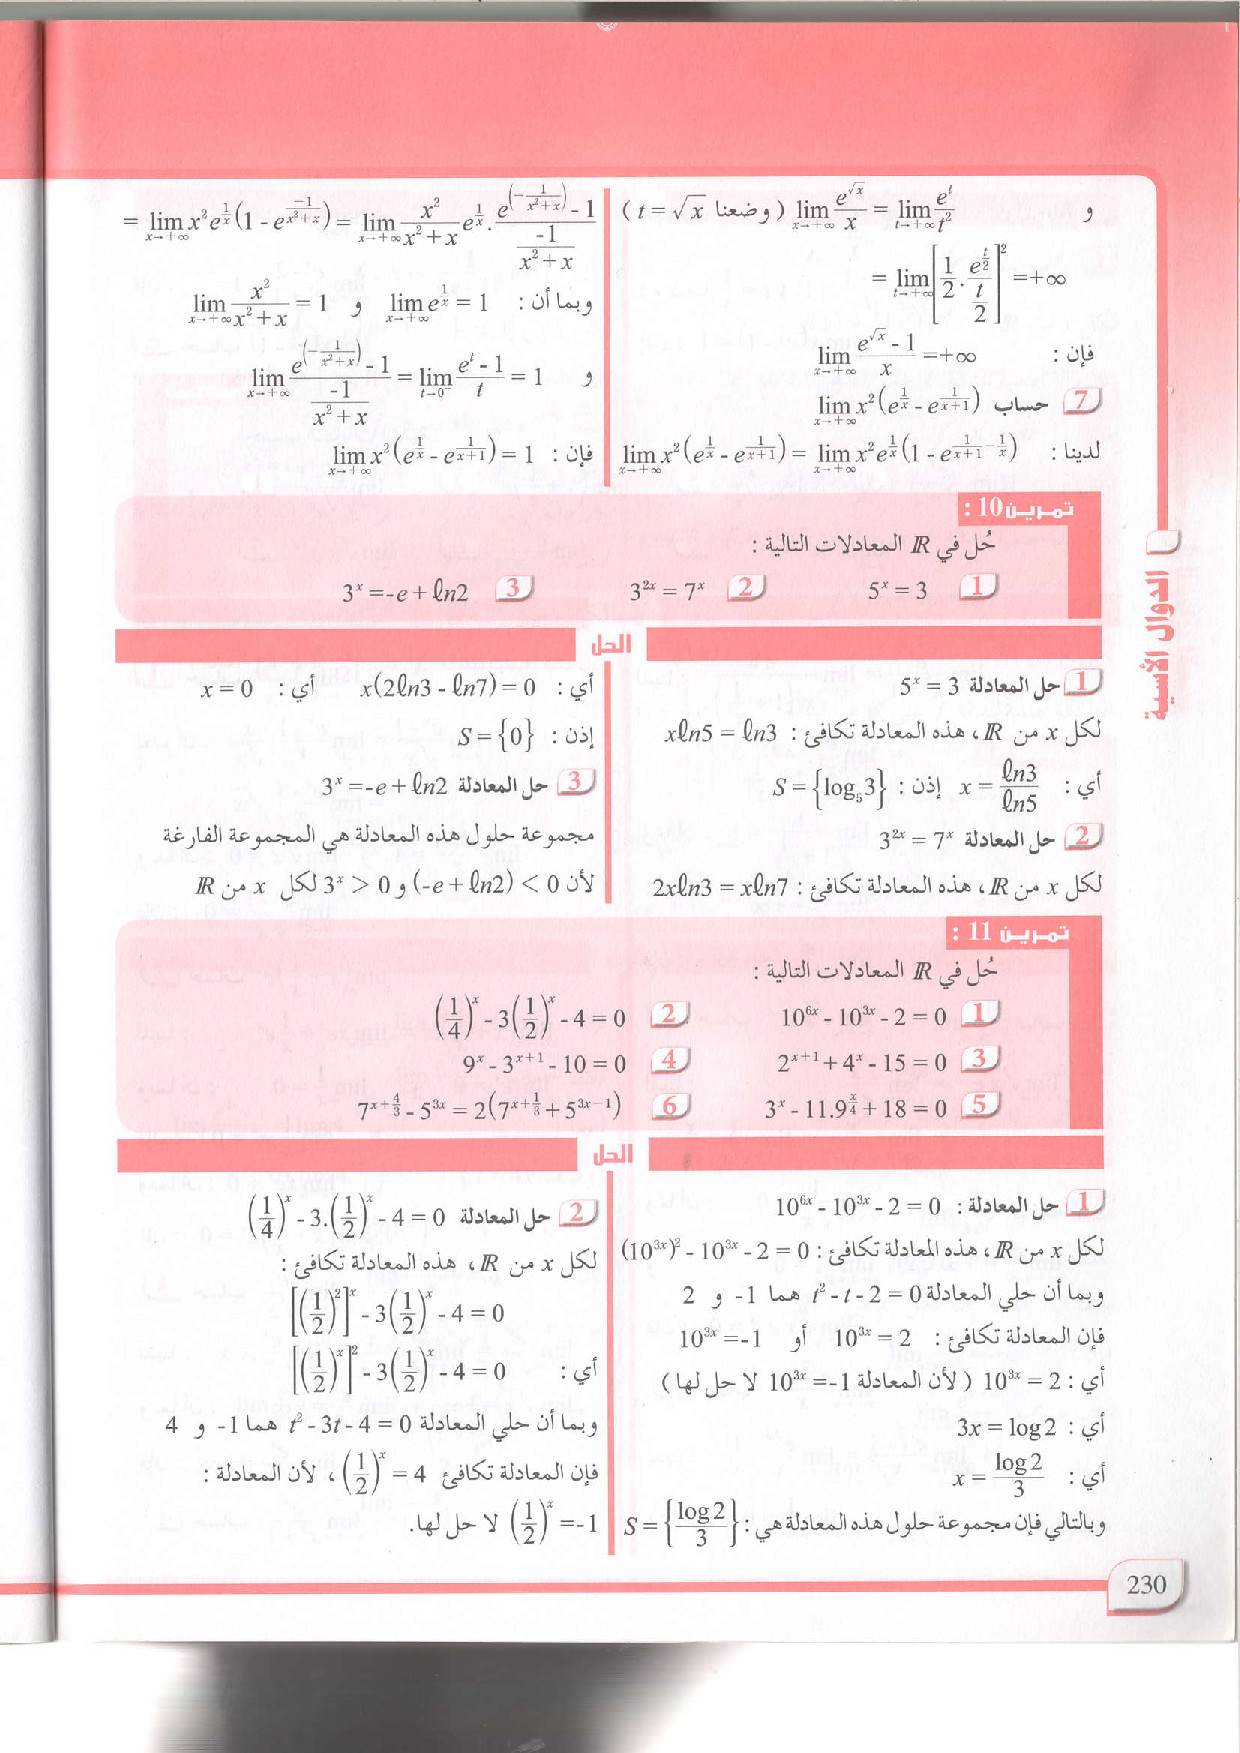 و lim_{x→+∞} e^{√x}/x = lim_{t→+∞} e^t/t² ( وضعنا t = √x )
= lim_{t→+∞} [1/2 . e^{t/2}/(t/2)]² = +∞
فإن : lim_{x→+∞} (e^{√x} - 1)/x = +∞
7 حساب lim_{x→+∞} x²(e^{1/x} - e^{1/(x+1)})
لدينا : lim_{x→+∞} x²(e^{1/x} - e^{1/(x+1)}) = lim_{x→+∞} x²e^{1/x}(1 - e^{1/(x+1) - 1/x})
= lim_{x→+∞} x²e^{1/x}(1 - e^{-1/(x²+x)}) = lim_{x→+∞} x²/(x²+x) e^{1/x} . (e^{(-1/(x²+x))} - 1)/(-1/(x²+x))
وبما أن : lim_{x→+∞} e^{1/x} = 1 و lim_{x→+∞} x²/(x²+x) = 1
و lim_{x→+∞} (e^{(-1/(x²+x))} - 1)/(-1/(x²+x)) = lim_{t→0⁻} (e^t - 1)/t = 1
فإن : lim_{x→+∞} x²(e^{1/x} - e^{1/(x+1)}) = 1
تمرين 10 :
حُل في ℝ المعادلات التالية :
1 5^x = 3 2 3^{2x} = 7^x 3 3^x = -e + ℓn2
الحل
1 حل المعادلة 5^x = 3
لكل x من ℝ، هذه المعادلة تكافئ : xℓn5 = ℓn3
أي : x = ℓn3/ℓn5 إذن : S = {log₅3}
2 حل المعادلة 3^{2x} = 7^x
لكل x من ℝ، هذه المعادلة تكافئ : 2xℓn3 = xℓn7
أي : x(2ℓn3 - ℓn7) = 0 أي : x = 0
إذن : S = {0}
3 حل المعادلة 3^x = -e + ℓn2
مجموعة حلول هذه المعادلة هي المجموعة الفارغة
لأن (-e + ℓn2) < 0 و 3^x > 0 لكل x من ℝ
تمرين 11 :
حُل في ℝ المعادلات التالية :
1 10^{6x} - 10^{3x} - 2 = 0 2 (1/4)^x - 3(1/2)^x - 4 = 0
3 2^{x+1} + 4^x - 15 = 0 4 9^x - 3^{x+1} - 10 = 0
5 3^x - 11.9^{x/4} + 18 = 0 6 7^{x+4/3} - 5^{3x} = 2(7^{x+1/3} + 5^{3x-1})
الحل
1 حل المعادلة : 10^{6x} - 10^{3x} - 2 = 0
لكل x من ℝ، هذه المعادلة تكافئ : (10^{3x})² - 10^{3x} - 2 = 0
وبما أن حلي المعادلة t² - t - 2 = 0 هما -1 و 2
فإن المعادلة تكافئ : 10^{3x} = 2 أو 10^{3x} = -1
أي : 10^{3x} = 2 ( لأن المعادلة 10^{3x} = -1 لا حل لها )
أي : 3x = log2
أي : x = log2/3
وبالتالي فإن مجموعة حلول هذه المعادلة هي : S = {log2/3}
2 حل المعادلة (1/4)^x - 3.(1/2)^x - 4 = 0
لكل x من ℝ، هذه المعادلة تكافئ :
[(1/2)²]^x - 3(1/2)^x - 4 = 0
أي : [(1/2)^x]² - 3(1/2)^x - 4 = 0
وبما أن حلي المعادلة t² - 3t - 4 = 0 هما -1 و 4
فإن المعادلة تكافئ (1/2)^x = 4 ، لأن المعادلة :
(1/2)^x = -1 لا حل لها.
الدوال الأسية
230